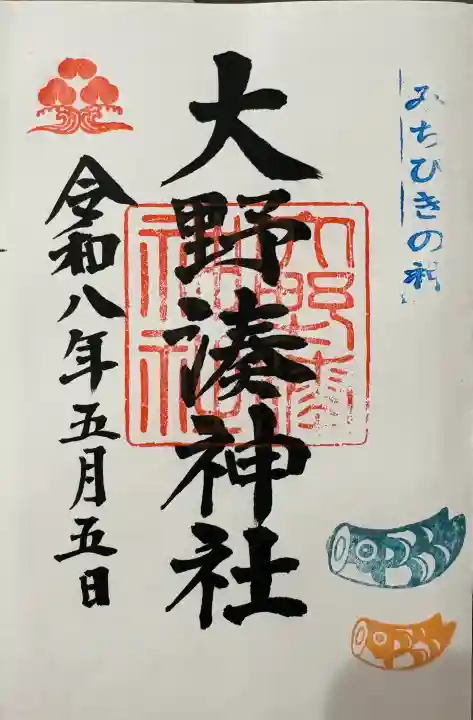 みちひきの神
大野湊神社
令和八年五月五日